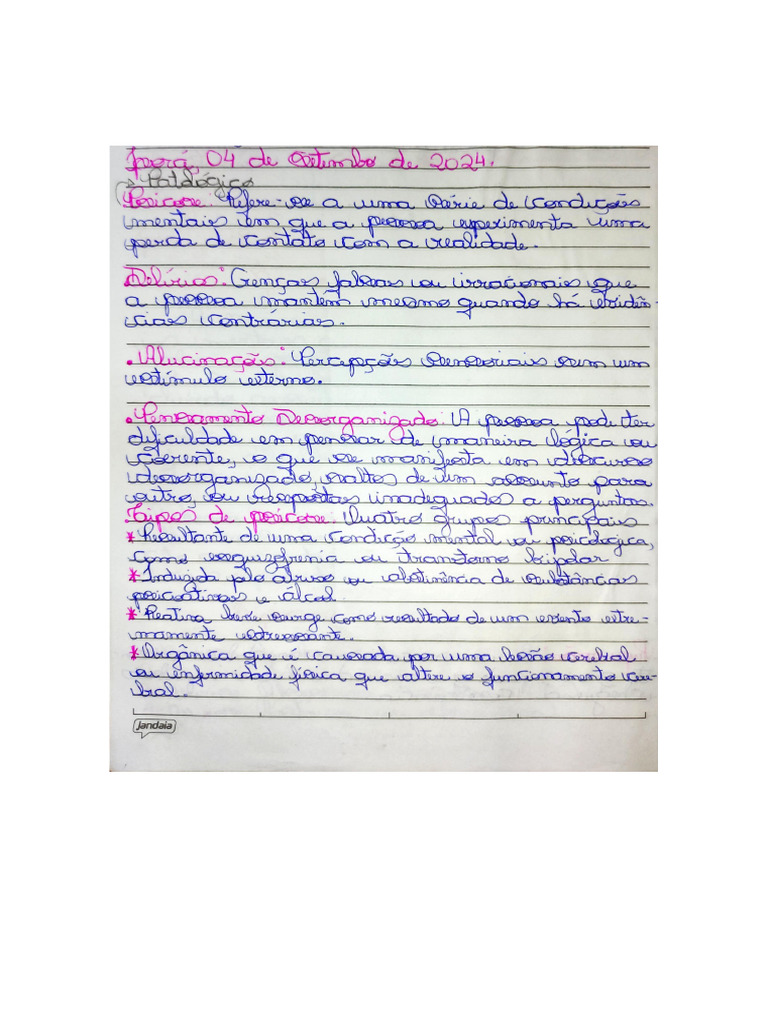 Iporá, 04 de Setembro de 2024.
Patológico
Psicose: Refere-se a uma série de condições
mentais em que a pessoa experimenta uma
perda de contato com a realidade.
Delírios: Crenças falsas ou irracionais que
a pessoa mantém mesmo quando há evidên-
cias contrárias.
• Alucinações: Percepções sensoriais sem um
estímulo externo.
• Pensamento Desorganizado: A pessoa pode ter
dificuldade em pensar de maneira lógica ou
coerente, o que se manifesta em discurso
desorganizado, saltos de um assunto para
outro, ou respostas inadequadas a perguntas.
Tipos de psicose: Quatro grupos principais
* Resultante de uma condição mental ou psicológica,
como esquizofrenia ou transtorno bipolar
* Induzida pelo abuso ou abstinência de substâncias
psicoativas e álcool.
* Reativa breve surge como resultado de um evento extre-
mamente estressante.
* Orgânica que é causada por uma lesão cerebral
ou enfermidade física que altere o funcionamento cere-
bral.
jandaia